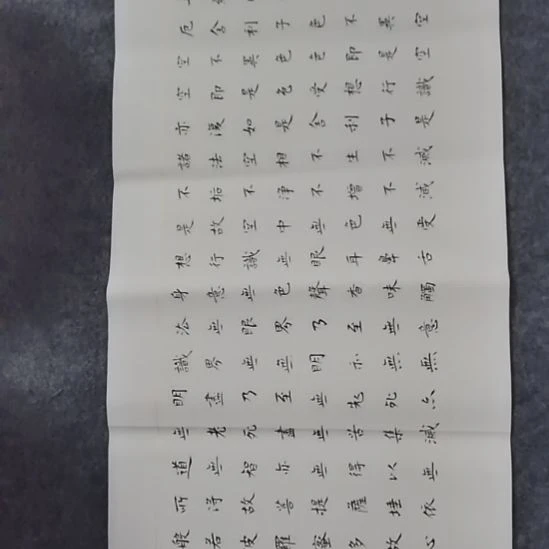 厄舍利子色不異空
空不異色色即是空
空即是色受想行識
亦復如是舍利子是
諸法空相不生不滅
不垢不淨不增不減
是故空中無色無受
想行識無眼耳鼻舌
身意無色聲香味觸
法無眼界乃至無意
識界無無明亦無無
明盡乃至無老死亦
無老死盡無苦集滅
道無智亦無得以無
所得故菩提薩埵依
般若波羅蜜多故心